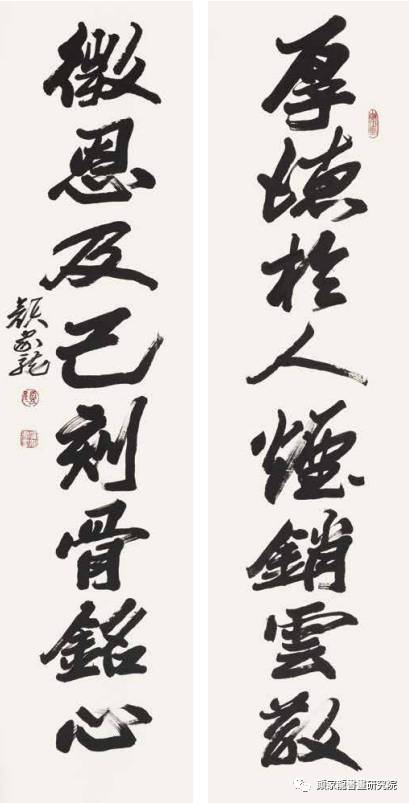 厚德於人煙銷雲散
微恩及己刻骨銘心
顏家龍
顏家龍書畫研究院